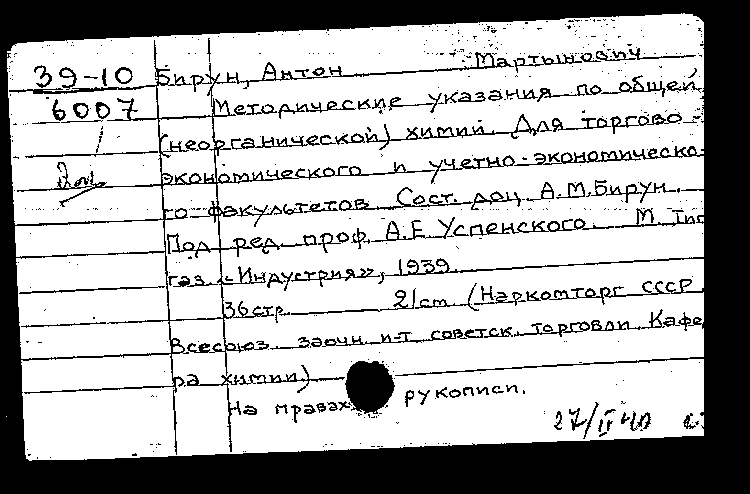 39-10 Бирун, Антон Мартынович
6007 Методические указания по общей
(неорганической) химии. Для торгово-
экономического и учетно-экономическо-
го факультетов Сост. доц. А.М.Бирун.
Под ред. проф. А.Е. Успенского. М. Тип
газ. «Индустрия», 1939.
36 стр. 21 cm (Наркомторг СССР.
Всесоюз. заочн. и-т советск. торговли Кафед
ра химии)
На правах рукописи.
27/II 40